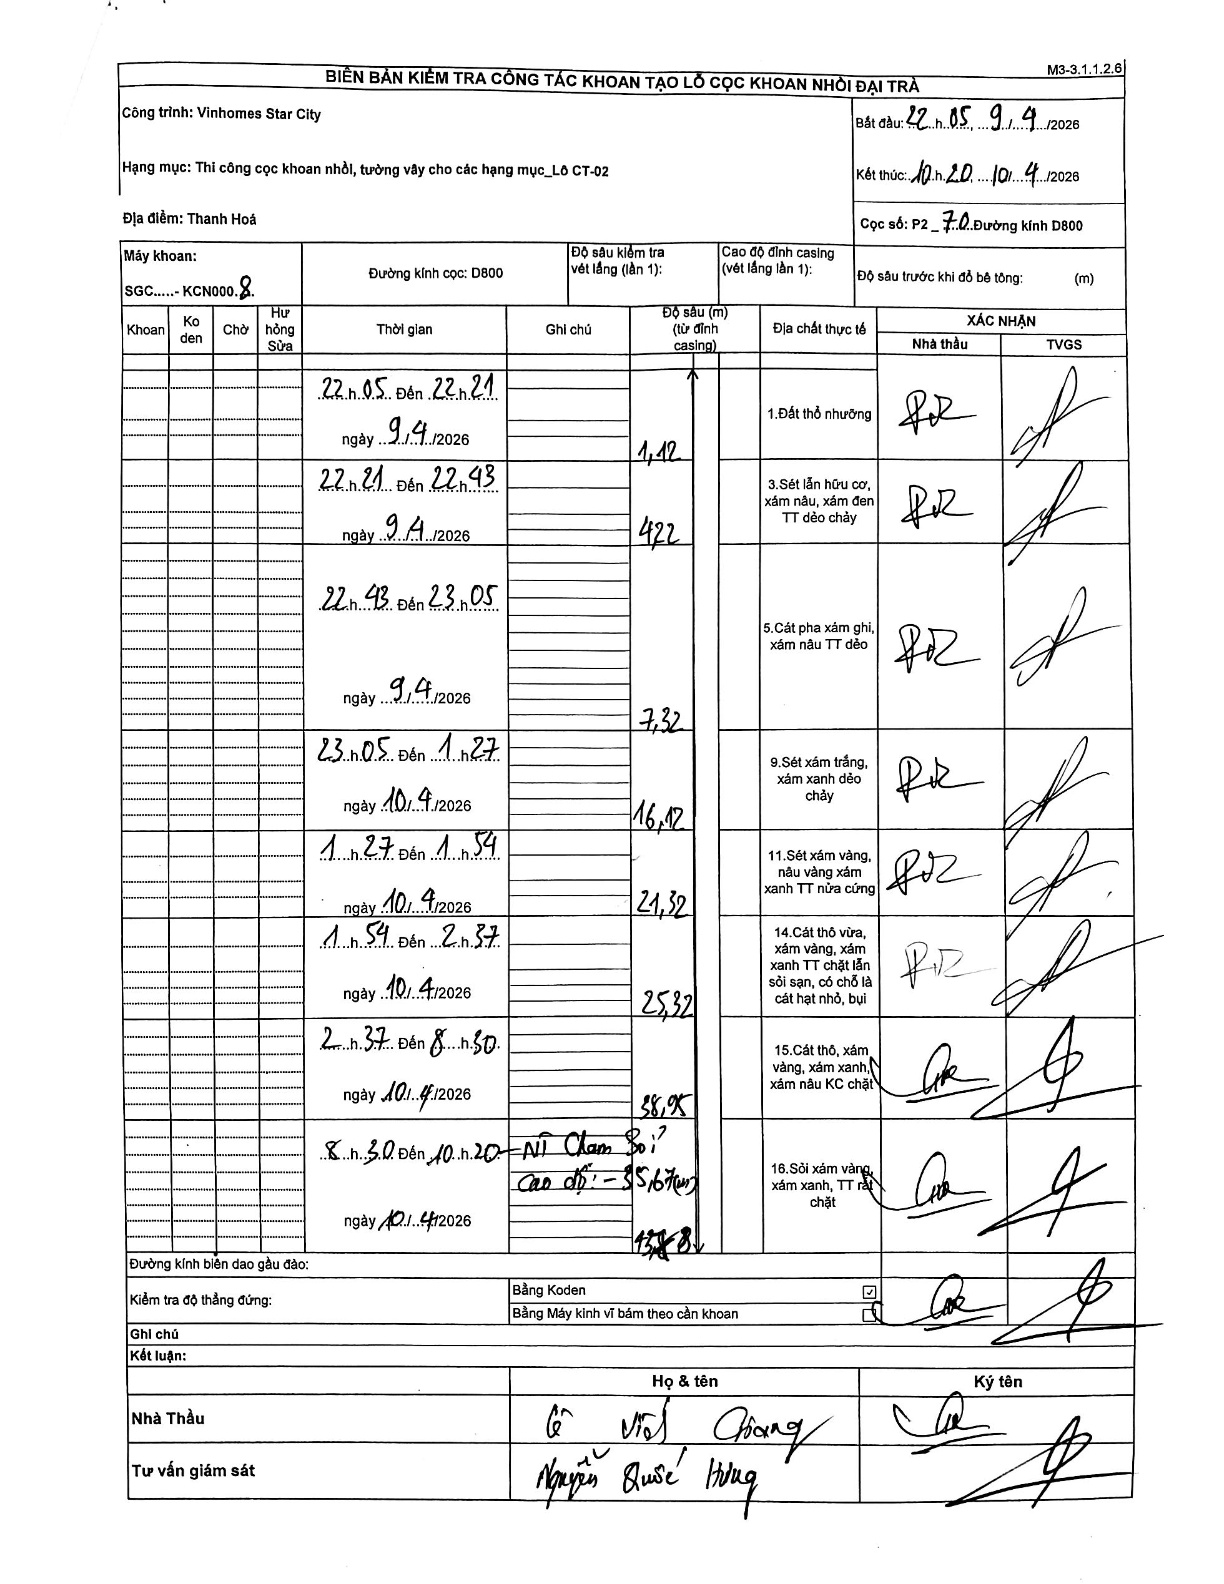 M3-3.1.1.2.6
BIÊN BẢN KIỂM TRA CÔNG TÁC KHOAN TẠO LỖ CỌC KHOAN NHỒI ĐẠI TRÀ
Công trình: Vinhomes Star City
Bắt đầu: 22 h 05, 9 / 4 /2026
Hạng mục: Thi công cọc khoan nhồi, tường vây cho các hạng mục_Lô CT-02
Kết thúc: 10 h 20, 10 / 4 /2026
Địa điểm: Thanh Hoá
Cọc số: P2_70 Đường kính D800
Máy khoan:
SGC.....- KCN000.8.
Đường kính cọc: D800
Độ sâu kiểm tra
vét lắng (lần 1):
Cao độ đỉnh casing
(vét lắng lần 1):
Độ sâu trước khi đổ bê tông: (m)
Khoan
Ko
den
Chờ
Hư
hỏng
Sửa
Thời gian
Ghi chú
Độ sâu (m)
(từ đỉnh
casing)
Địa chất thực tế
XÁC NHẬN
Nhà thầu
TVGS
22 h 05 Đến 22 h 21
ngày 9 / 4 /2026
1,12
1.Đất thổ nhưỡng
22 h 21 Đến 22 h 43
ngày 9 / 4 /2026
4,22
3.Sét lẫn hữu cơ,
xám nâu, xám đen
TT dẻo chảy
22 h 43 Đến 23 h 05
ngày 9 / 4 /2026
7,32
5.Cát pha xám ghi,
xám nâu TT dẻo
23 h 05 Đến 1 h 27
ngày 10 / 4 /2026
16,12
9.Sét xám trắng,
xám xanh dẻo
chảy
1 h 27 Đến 1 h 54
ngày 10 / 4 /2026
21,32
11.Sét xám vàng,
nâu vàng xám
xanh TT nửa cứng
1 h 54 Đến 2 h 37
ngày 10 / 4 /2026
25,32
14.Cát thô vừa,
xám vàng, xám
xanh TT chặt lẫn
sỏi sạn, có chỗ là
cát hạt nhỏ, bụi
2 h 37 Đến 8 h 30
ngày 10 / 4 /2026
38,95
15.Cát thô, xám
vàng, xám xanh,
xám nâu KC chặt
8 h 30 Đến 10 h 20
Chạm Sỏi
Cao độ: -35,67(m)
ngày 10 / 4 /2026
16.Sỏi xám vàng,
xám xanh, TT rất
chặt
Đường kính biên dao gầu đào:
Kiểm tra độ thẳng đứng:
Bằng Koden
Bằng Máy kinh vĩ bám theo cần khoan
Ghi chú
Kết luận:
Họ & tên
Ký tên
Nhà Thầu
Lê Việt Hoàng
Tư vấn giám sát
Nguyễn Quốc Hưng